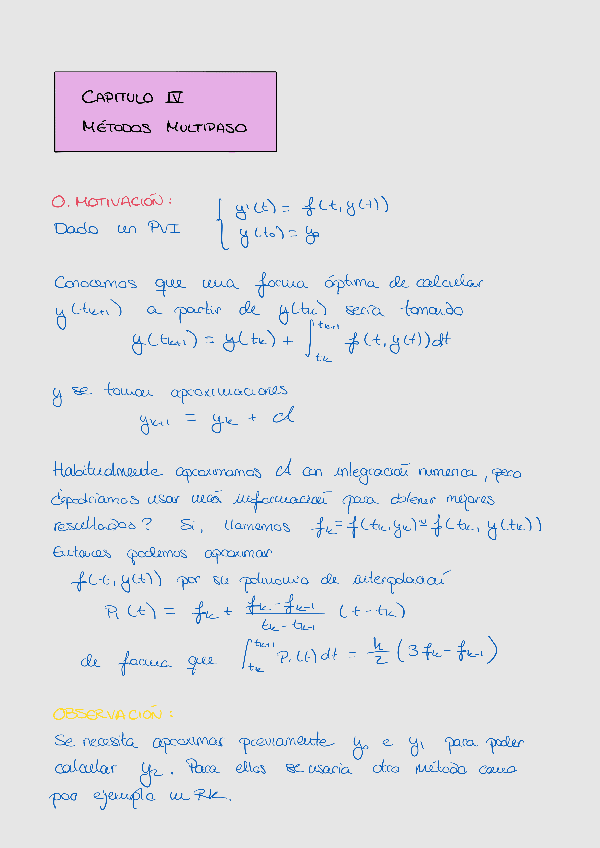 CAPITULO IV
MÉTODOS MULTIPASO
0. MOTIVACIÓN:
Dado un PVI { y'(t) = f(t, y(t))
y(t₀) = y₀
Conocemos que una forma óptima de calcular
y(tₖ₊₁) a partir de y(tₖ) sería tomando
y(tₖ₊₁) = y(tₖ) + ∫_{tₖ}^{tₖ₊₁} f(t, y(t))dt
y se toman aproximaciones
yₖ₊₁ = yₖ + A
Habitualmente aproximamos A con integración numérica, pero
¿podríamos usar más información para obtener mejores
resultados? Si, llamemos fₖ = f(tₖ, yₖ) ≃ f(tₖ, y(tₖ))
Entonces podemos aproximar
f(t, y(t)) por su polinomio de interpolación
P₁(t) = fₖ + (fₖ - fₖ₋₁)/(tₖ - tₖ₋₁) (t - tₖ)
de forma que ∫_{tₖ}^{tₖ₊₁} P₁(t)dt = h/2 (3fₖ - fₖ₋₁)
OBSERVACIÓN:
Se necesita aproximar previamente y₀ e y₁ para poder
calcular y₂. Para ellos se usaría otro método como
por ejemplo un RK.